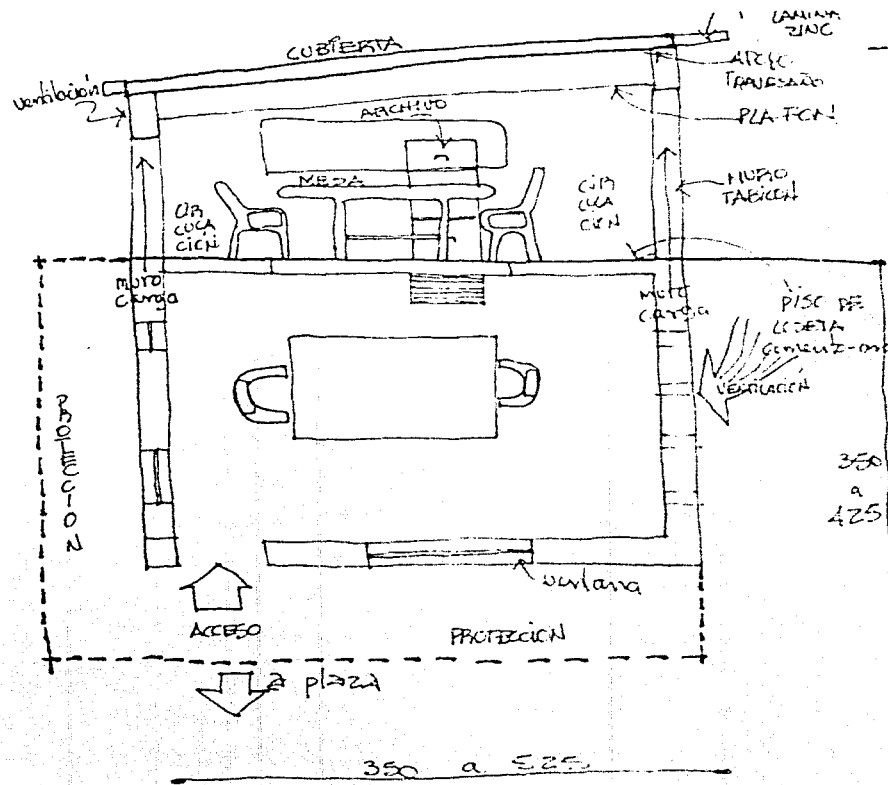 LAMINA
ZINC
CUBIERTA
APOYO
TRAVESAÑO
ventilación
ARCHIVO
MURO
TABICON
MESA
CIR
CULA
CIÓN
CIR
CULA
CIÓN
muro
carga
muro
carga
PISO DE
LOSETA
VENTILACIÓN
PROTECCION
350
a
425
ventana
ACCESO
PROTECCIÓN
a plaza
350 a 525